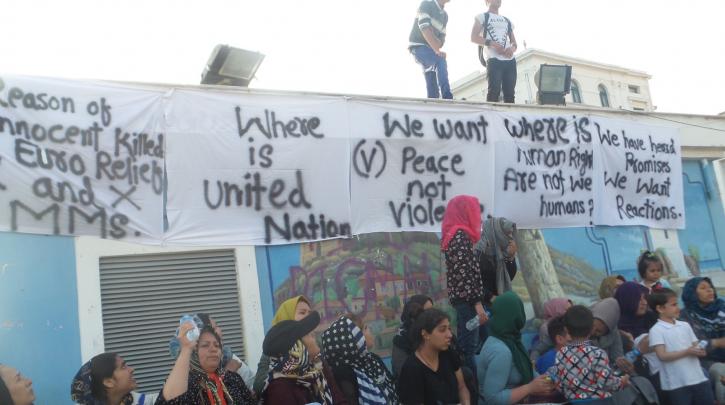 Reason of
innocent Killed
Euro Relief
and X
MMs.
Where
is
united
Nation
We want
(V) Peace
not
Violen
where is
Human Right
Are not we
humans?
We have heard
Promises
We Want
Reactions.